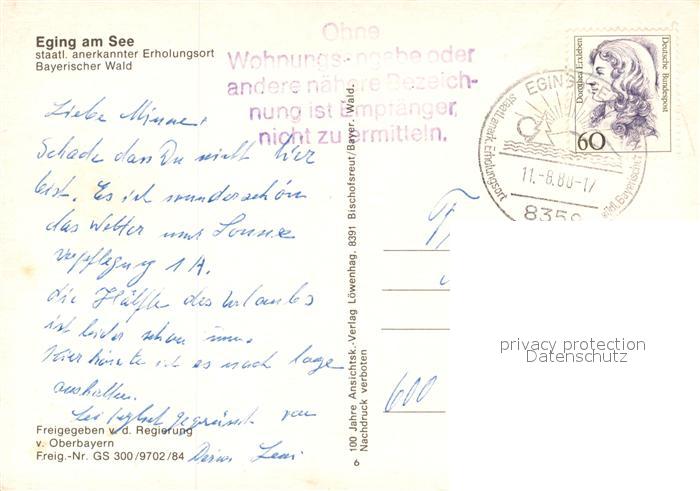 Eging am See
staatl. anerkannter Erholungsort
Bayerischer Wald
Ohne
Wohnungsangabe oder
andere nähere Bezeich-
nung ist Empfänger
nicht zu ermitteln.
Dorothea Erxleben
Deutsche Bundespost
60
EGING
staatl. anerk. Erholungsort
11.-8.88-17
8359
Liebe Minna,
Schade dass Du nicht hier
bist. Es ist wunderschön
das Wetter und Sonne
Verpflegung 1A.
die Hälfte des Urlaubs
ist leider schon
hier könnte ich es noch lange
aushalten.
Sei herzlichst gegrüsst von
Deiner Leni
600
Freigegeben v. d. Regierung
v. Oberbayern
Freig.-Nr. GS 300/9702/84
100 Jahre Ansichtsk.-Verlag Löwenhag. 8391 Bischofsreut/Bayer. Wald.
Nachdruck verboten
6
privacy protection
Datenschutz